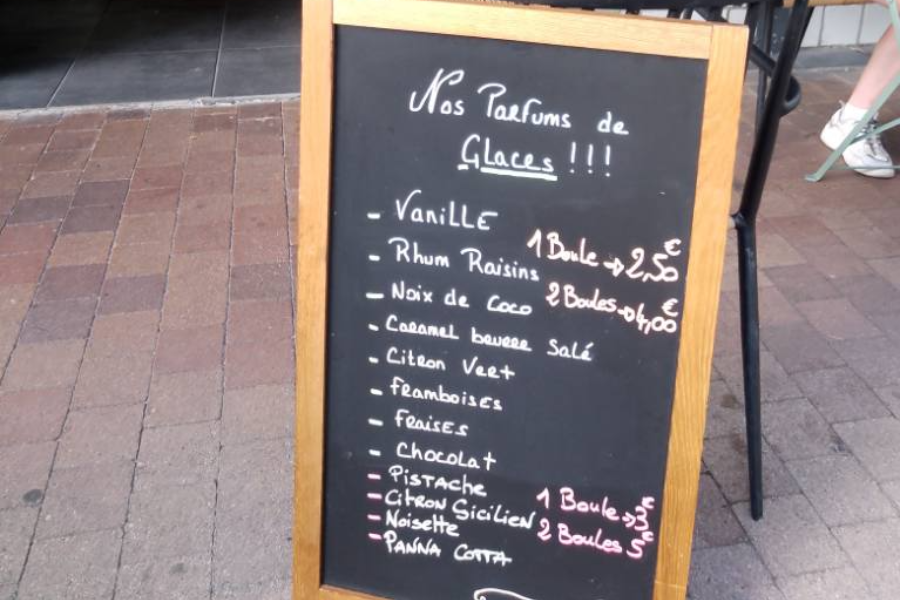 Nos Parfums de
Glaces !!!
- Vanille
1 Boule → 2,50 €
- Rhum Raisins
2 Boules → 4,00 €
- Noix de Coco
- Caramel beurre Salé
- Citron Vert
- Framboises
- Fraises
- Chocolat
- Pistache
1 Boule → 3€
- Citron Sicilien
2 Boules 5€
- Noisette
- Panna Cotta